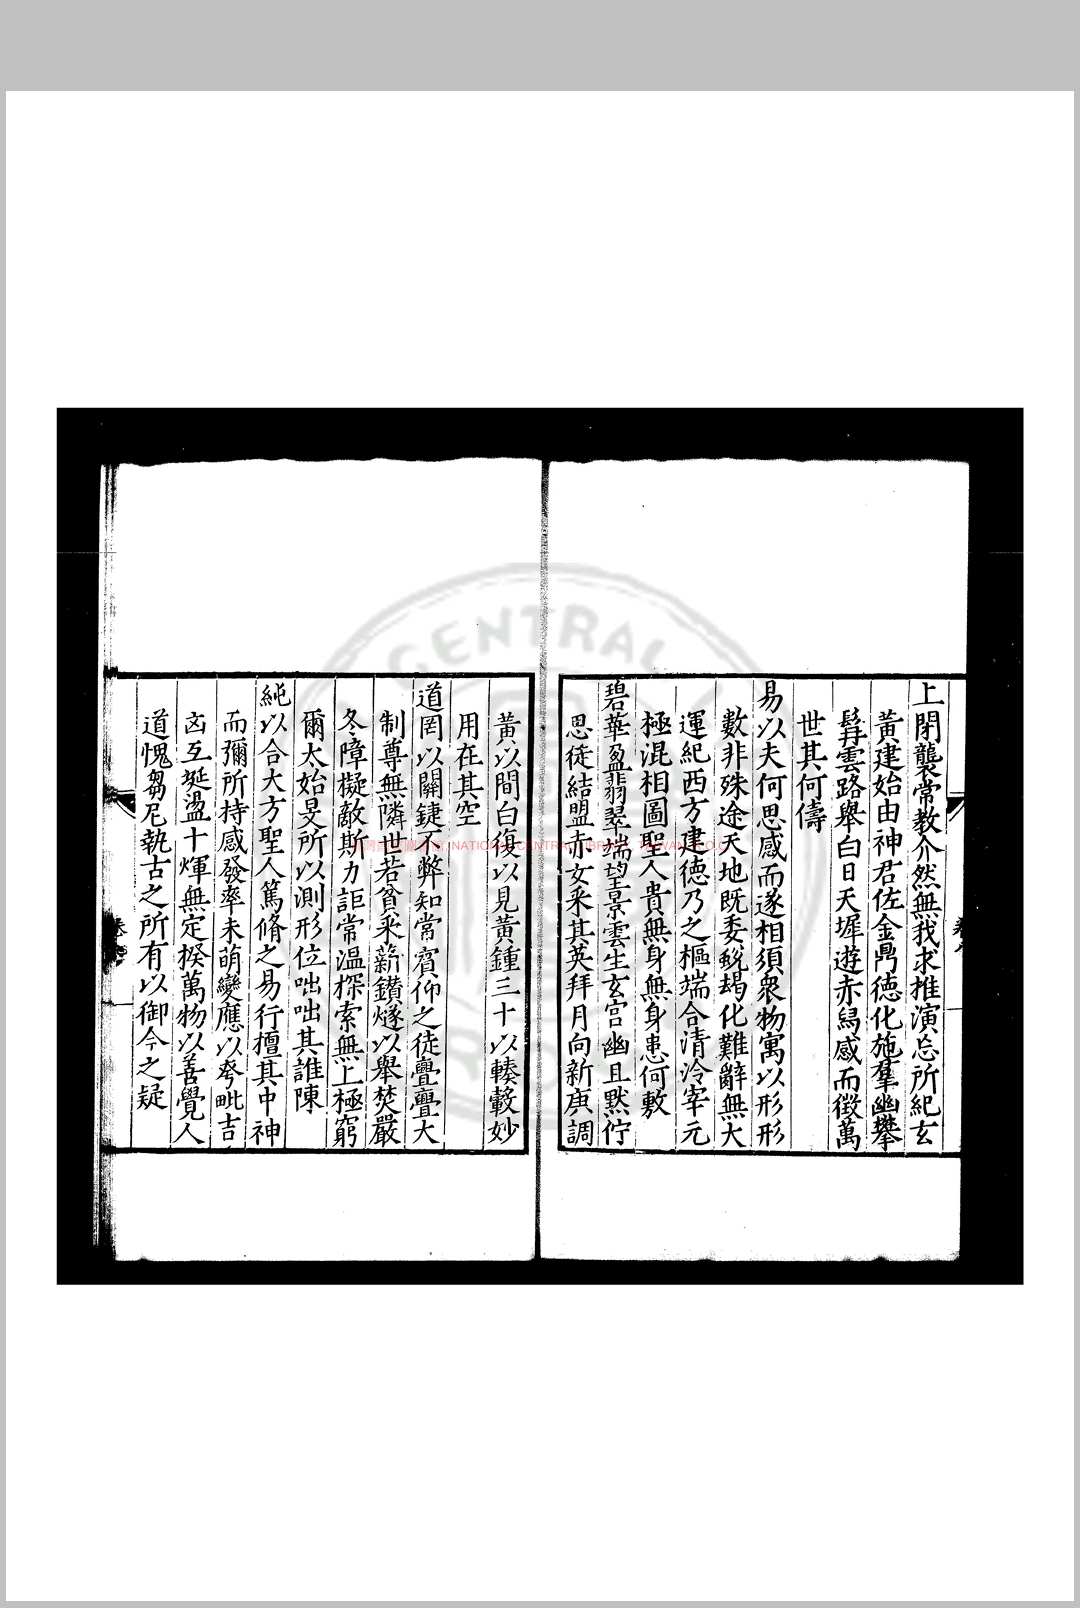 上閉襲常教介然無我求推演忘所紀玄
黃建始由神君佐金鼎德化施羣幽攀
髯雲路舉白日天墀遊赤舄感而徵萬
世其何儔
易以夫何思感而遂相須衆物寓以形形
數非殊途天地既委蛻朅化難辭無大
運紀西方建德乃之樞端合清泠宰元
極混相圖聖人貴無身無身患何敷
碧華盈翡翠端望景雲生玄宫幽且默佇
思徒結盟赤女采其英拜月向新庚調
黃以間白復以見黃鍾三十以輳轂妙
用在其空
道罔以關鍵不弊知常賓仰之徒亹亹大
制尊無隣世若貧采薪鑽燧以舉焚嚴
冬障擬敵斯力詎常溫探索無上極窮
爾太始旻所以測形位咄咄其誰陳
純以合大方聖人篤脩之易行擅其中神
而彌所持感發率未萌變應以旁毗吉
凶互挻盪十煇無定揆萬物以善覺人
道愧芻尼執古之所有以御今之疑
NATIONAL CENTRAL LIBRARY, TAIWAN, R.O.C
CENTRAL